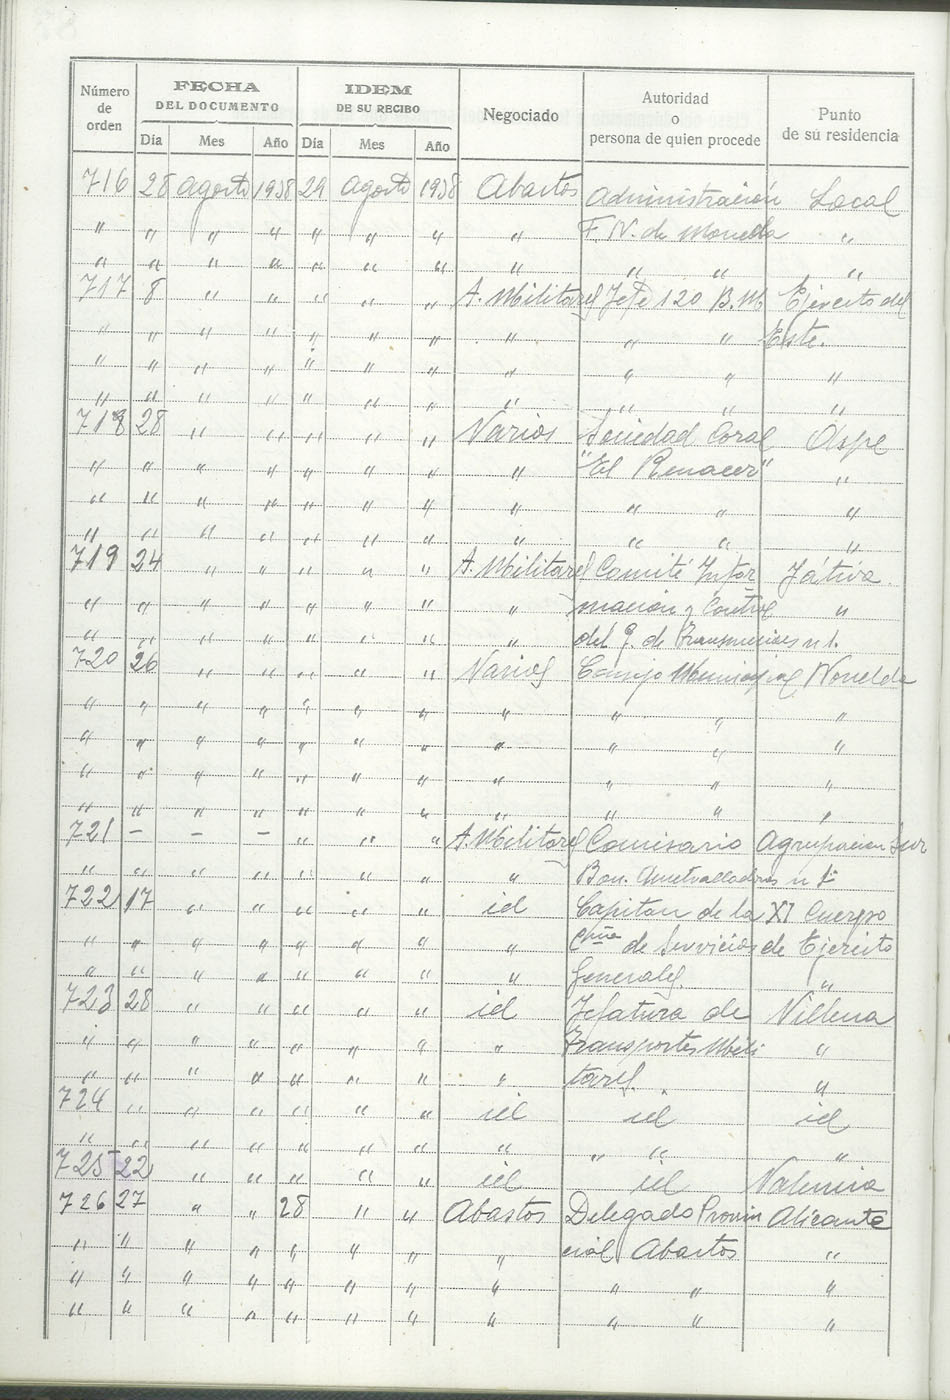 Número de orden | FECHA DEL DOCUMENTO | IDEM DE SU RECIBO | Negociado | Autoridad o persona de quien procede | Punto de su residencia
Día | Mes | Año | Día | Mes | Año
716 28 agosto 1938 29 agosto 1938 Abastos Administración Local
" " " " " " " " F. N. de Moneda "
" " " " " " " " " " "
717 8 " " " " " A. Militares Jefe 120 B. M. Ejército del
" " " " " " " " " " Este.
" " " " " " " " " " "
" " " " " " " " " " "
718 28 " " " " " Varios Sociedad Coral Aspe
" " " " " " " " "El Renacer" "
" " " " " " " " " " "
" " " " " " " " " " "
719 24 " " " " " A. Militares Comité Infor Játiva.
" " " " " " " " mación y Control "
" " " " " " " " del g. de Transmisiones n 1.
720 26 " " " " " Varios Consejo Municipal Novelda
" " " " " " " " " " "
" " " " " " " " " " "
" " " " " " " " " " "
" " " " " " " " " " "
721 – – – " " " A. Militares Comisario Agrupación Sur
" " " " " " " " Bon. Ametralladoras n 1º
722 17 " " " " " id Capitan de la XI Cuerpo
" " " " " " " " Cpñia de Servicios de Ejército
" " " " " " " " Generales. "
723 28 " " " " " id Jefatura de Villena
" " " " " " " " Transportes Mili "
" " " " " " " " tares. "
724 " " " " " " id id id
" " " " " " " " " " "
725 22 " " " " " id id Valencia
726 27 " " 28 " " Abastos Delegado Provin Alicante
" " " " " " " " cial Abastos "
" " " " " " " " " " "
" " " " " " " " " " "